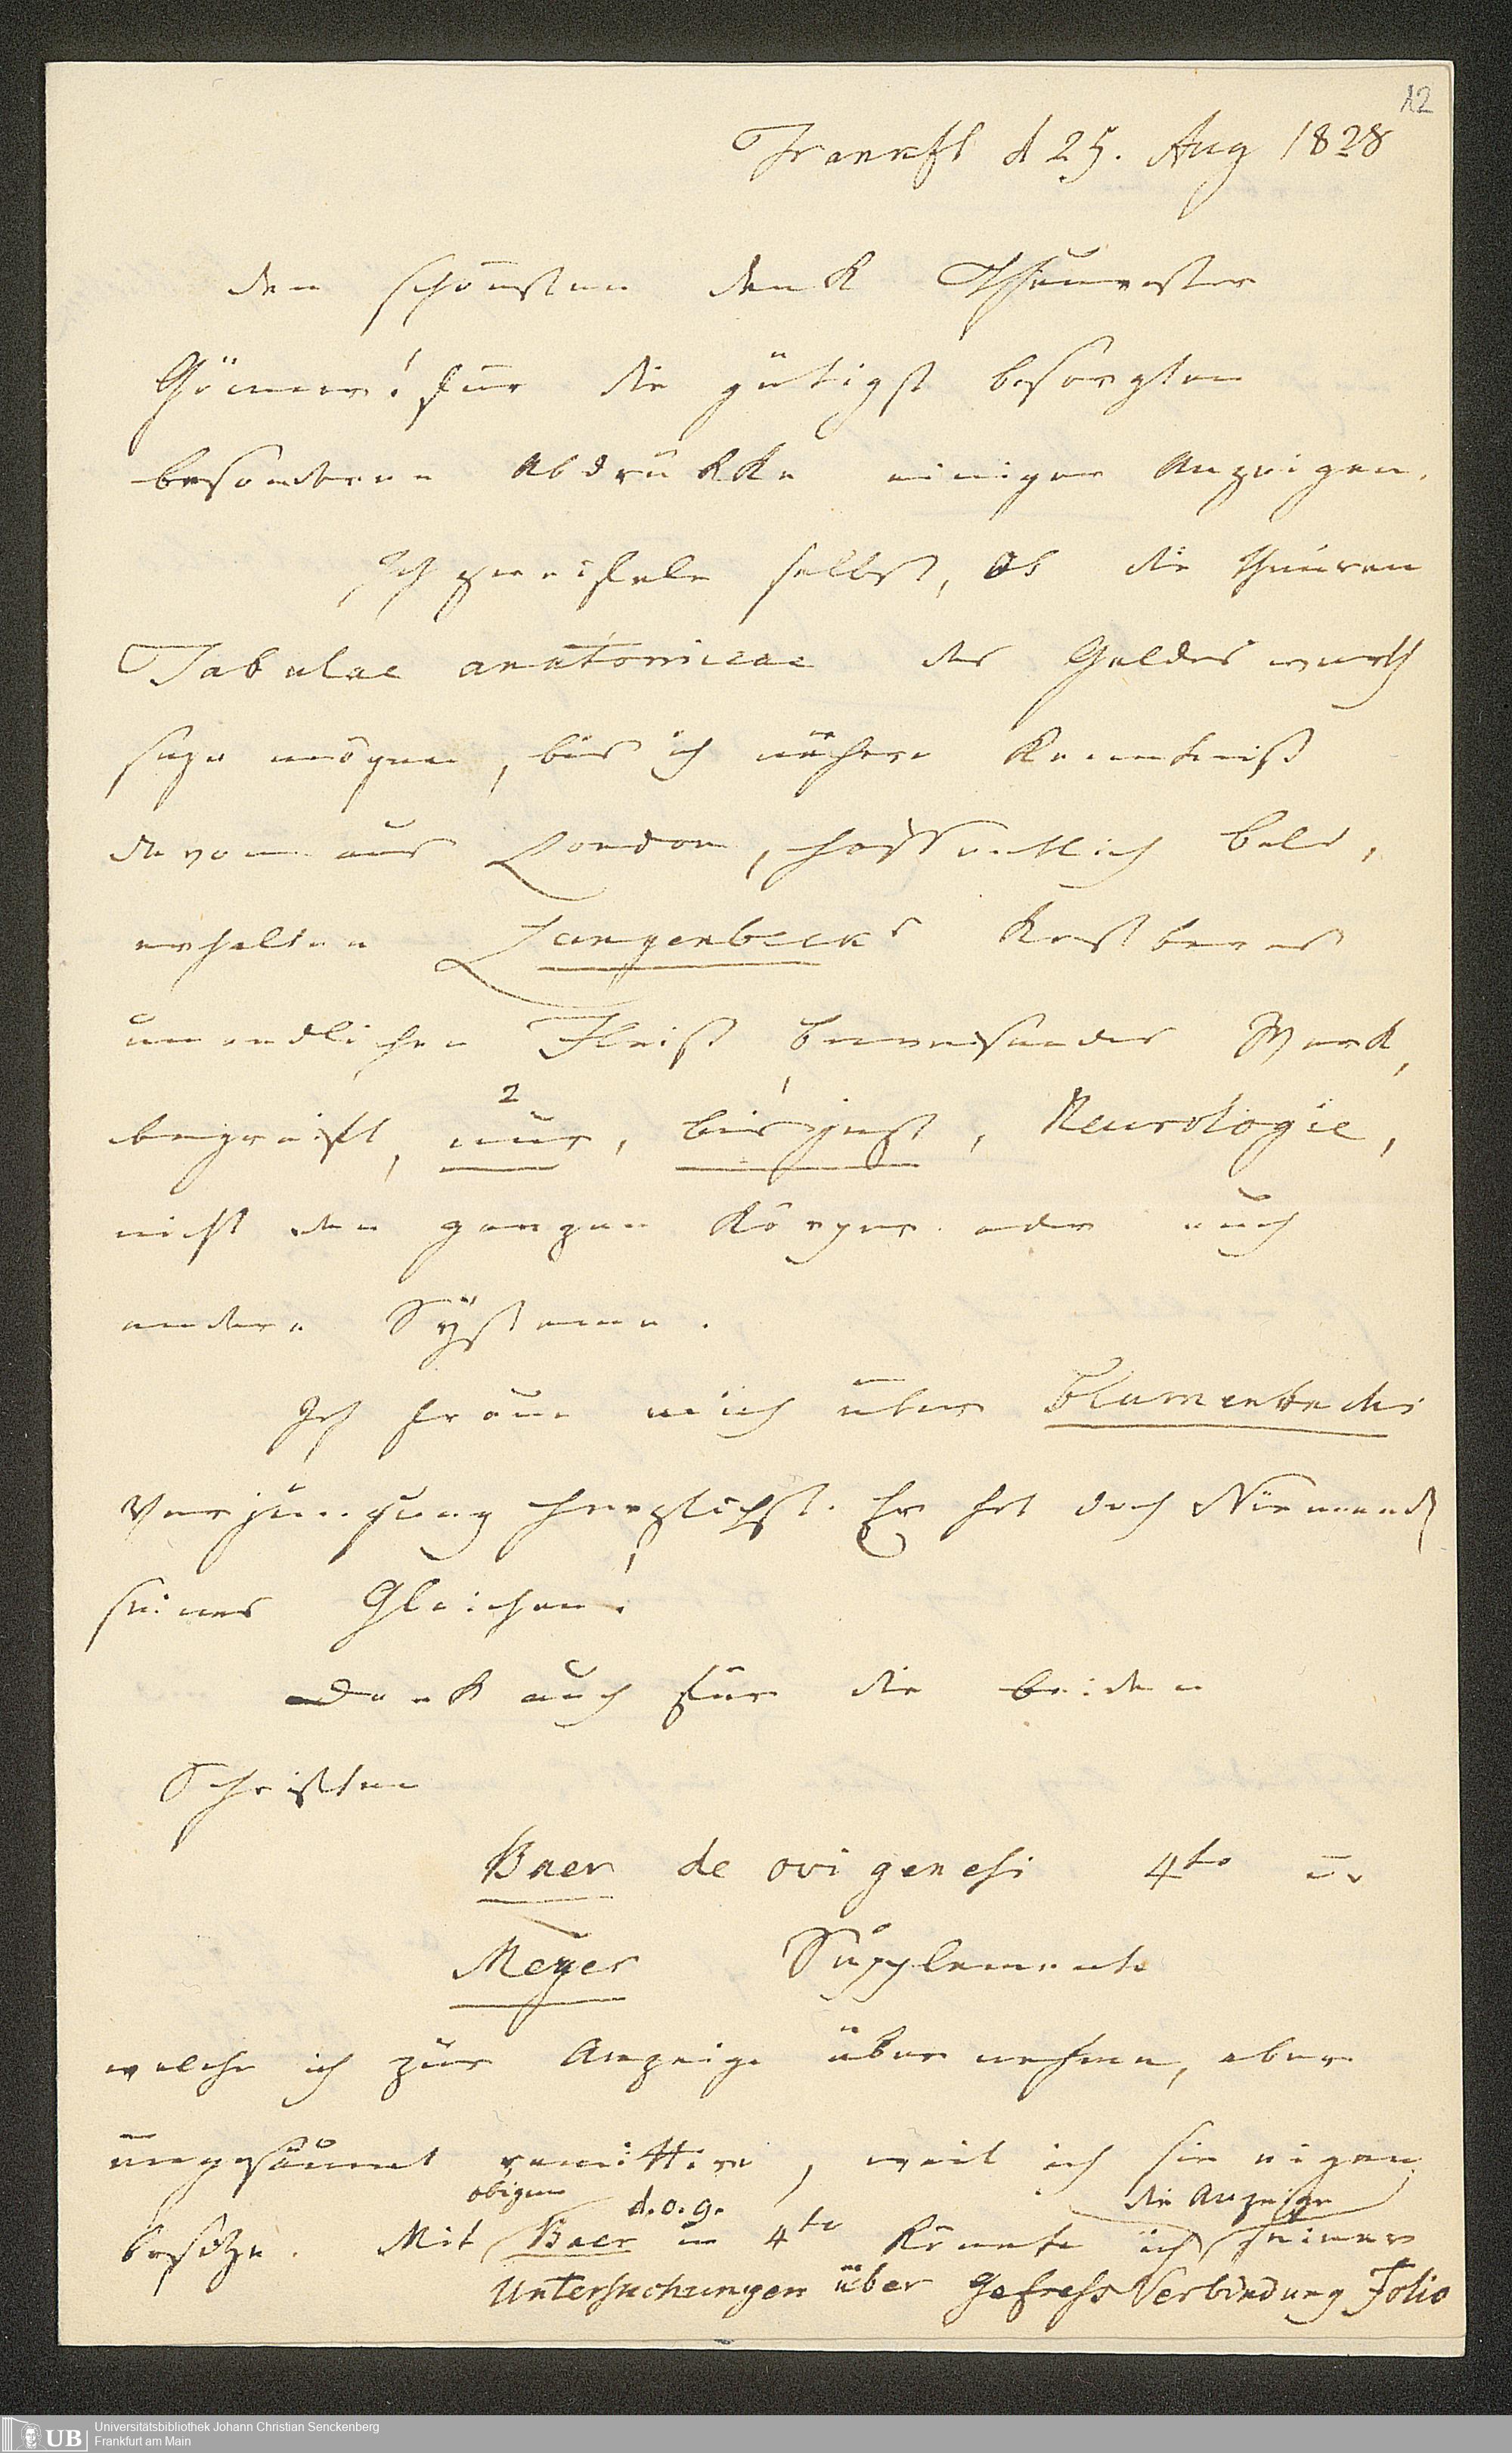 12
Frankft d 25. Aug 1828
den schönsten Dank Theuerster
Gönner! für die gütigst besorgten
besonderen Abdrükke einiger Anzeigen.
Ich zweifele selbst, ob die theuren
Tabulae anatomicae des Geldes werth
seyn mögen, bis ich nähere Kenntniß
davon aus London, hoffentlich bald,
erhalten Langenbecks Kostbares
unendlichen Fleiß beweisendes Werk,
begreift, nur, bis jezt, Neurologie,
2 1
nicht den ganzen Körper oder auch
andere Systeme.
Ich freue mich über Blumenbachs
Verjüngung herzlichst. Er hat doch Niemand
seines Gleichen!
Dank auch für die beiden
Schriften
Baer de ovi genesi 4to u.
Meyer Supplemente
welche ich zur Anzeige übernehme, aber
ungesäumt remittire, weil ich sie eigen
besitze. Mit obigen Baer d.o.g. in 4to könnte ich die Anzeige seiner
Untersuchungen über Gefäss Verbindung Folio
Universitätsbibliothek Johann Christian Senckenberg
Frankfurt am Main
UB